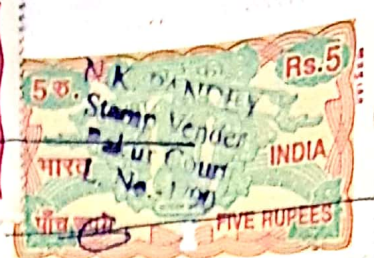 5 रु.
Rs.5
N.K. PANDEY
Stamp Vender
Court
L. No.-1/90
भारत
INDIA
पाँच रुपये
FIVE RUPEES